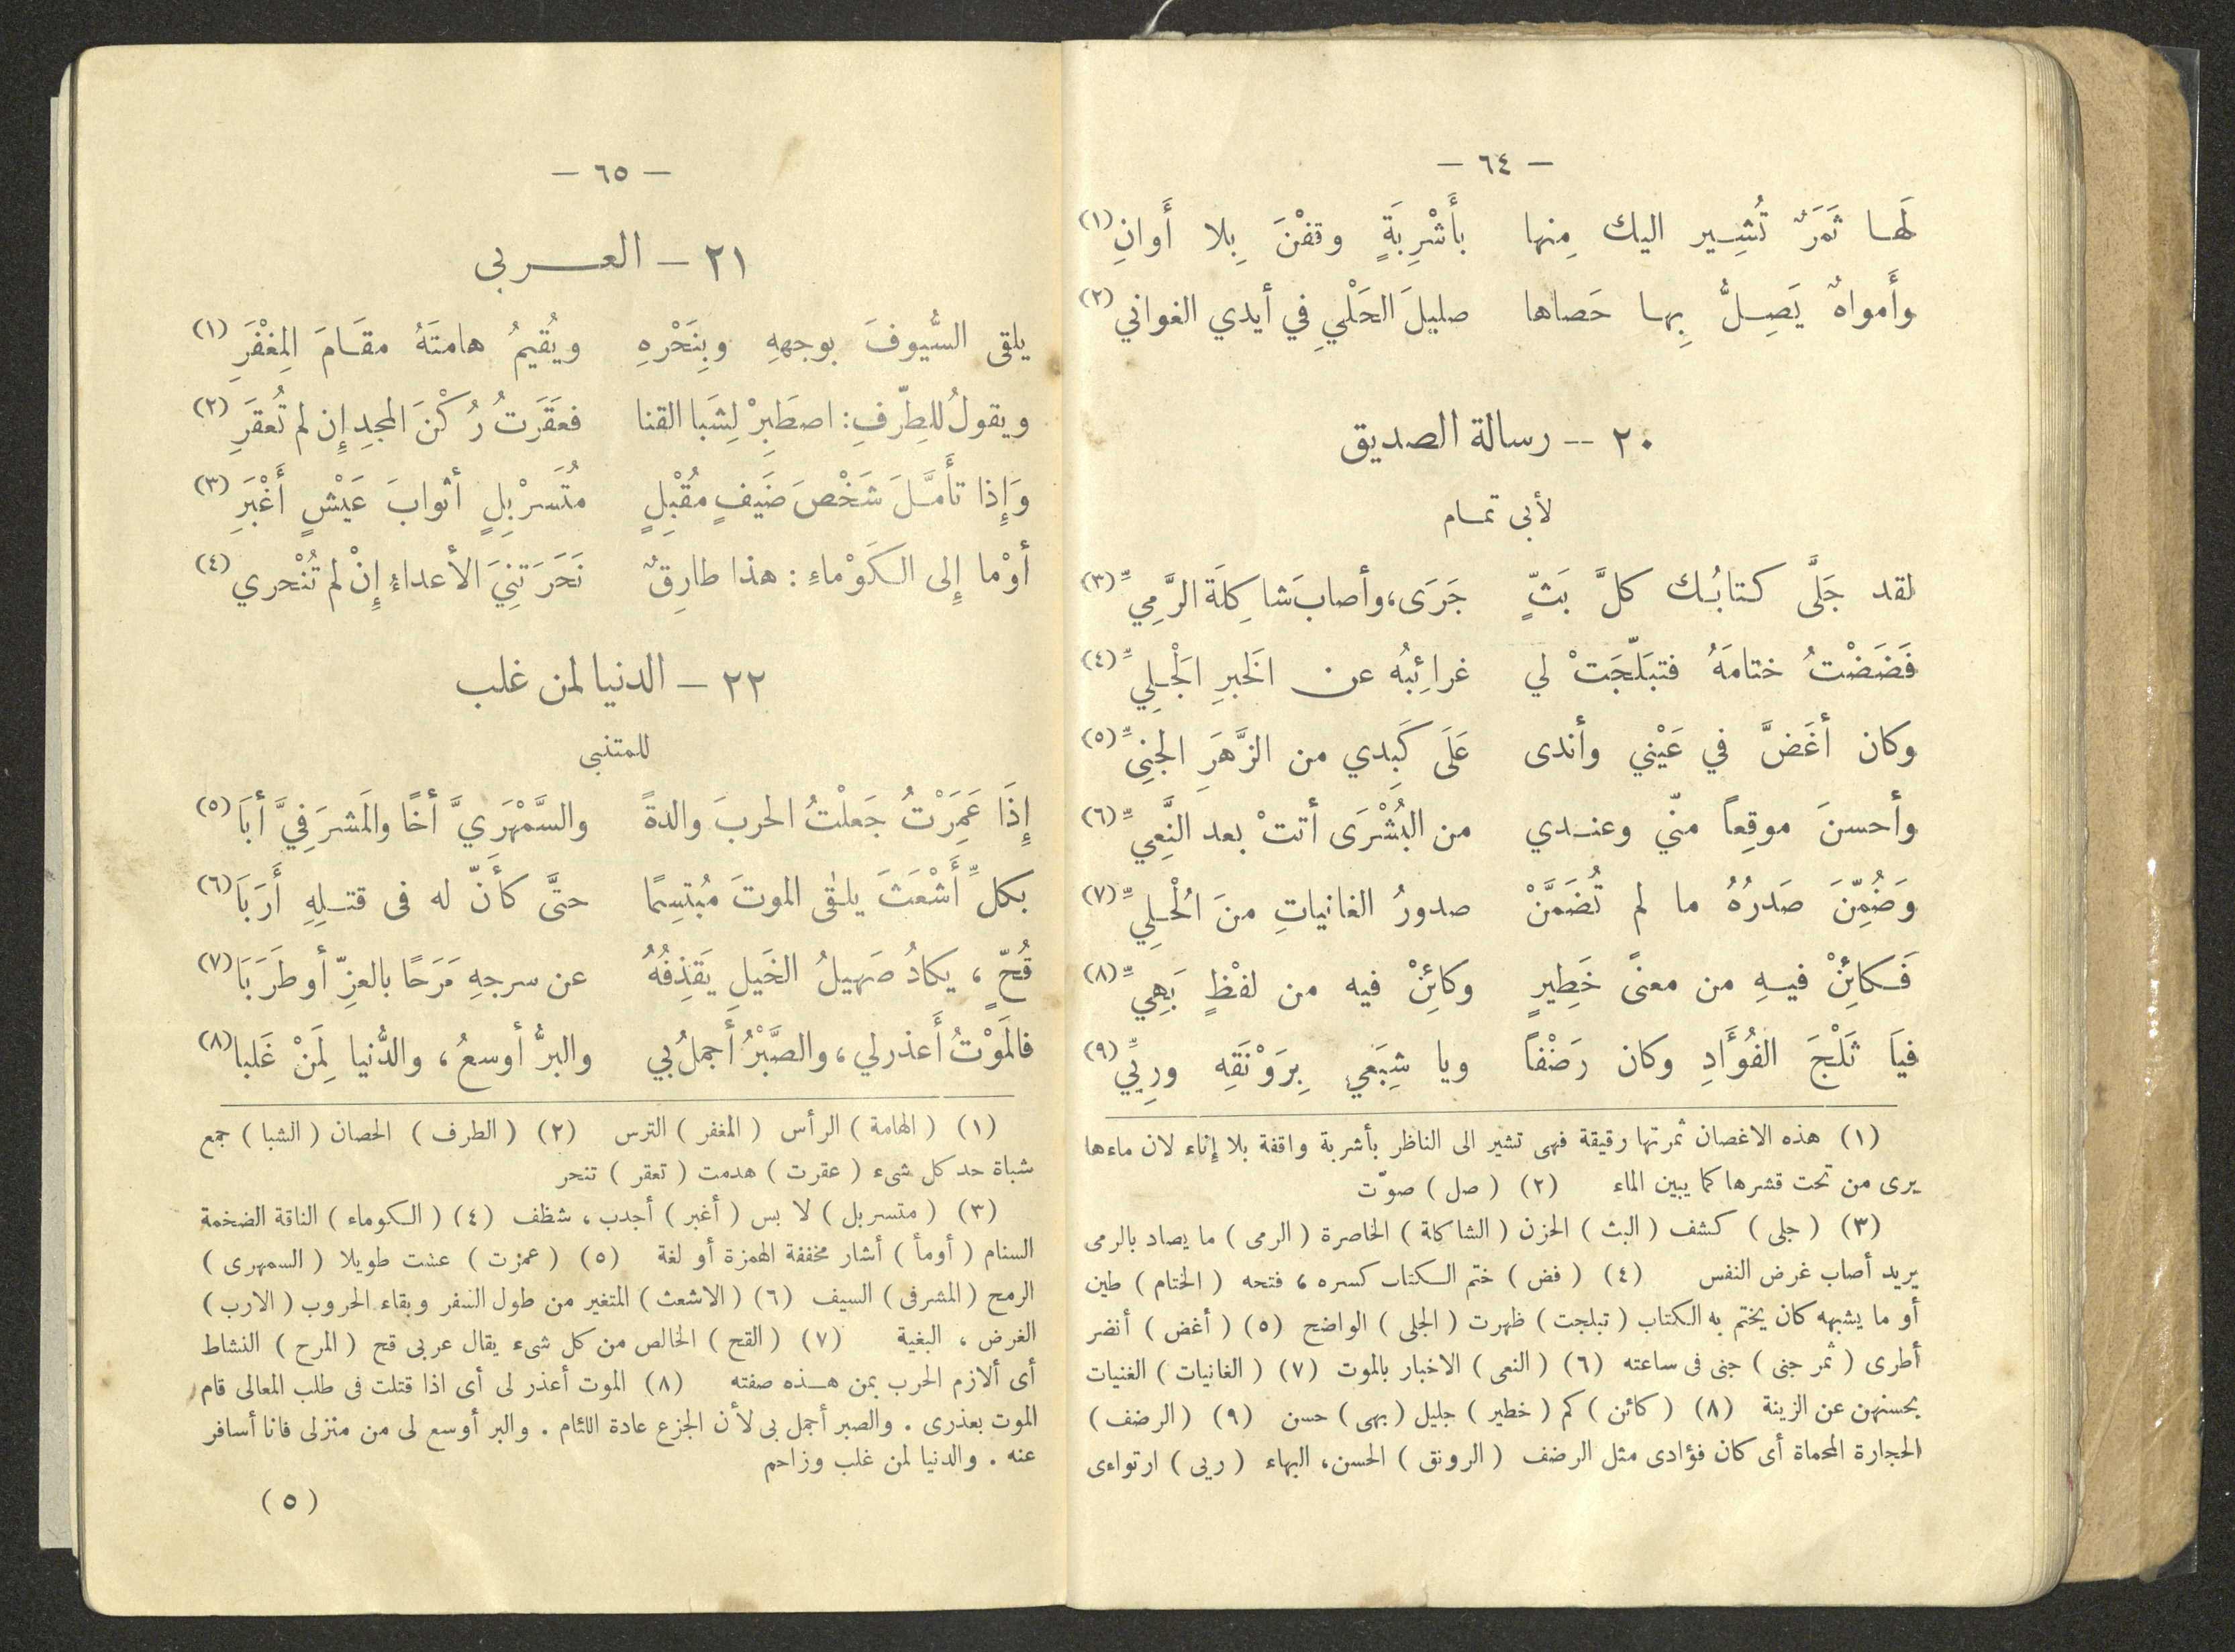 — ٦٤ —
لَهَا ثَمَرٌ تُشِير اليك مِنها بأَشْرِبَةٍ وقفْنَ بِلا أَوانِ (١)
وأَمواهٌ يَصِلُّ بِها حَصاها صليلَ الحَلْيِ فِي أيدي الغواني (٢)
٢٠ -- رسالة الصديق
لأبى تمام
لقد جَلَّى كتابُك كلَّ بَثٍّ جَرَى، وأصابَ شاكِلَة الرَّمِيِّ (٣)
فَضَضْتُ ختامَهُ فتبَلّجَتْ لي غرائِبُه عن الخَبرِ الجَلِيِّ (٤)
وكان أغَضَّ في عَيْني وأندى عَلَى كَبِدي من الزَّهَرَ الجنِيِّ (٥)
وأحسنَ موقِعاً منّي وعندي من البُشْرَى أتتْ بعد النَّعِيِّ (٦)
وَضُمِّنَ صَدرُهُ ما لم تُضَمَّنْ صدورُ الغانياتِ منَ الحُلِيِّ (٧)
فَكائِنْ فيهِ من معنىً خَطِيرٍ وكائِنْ فيه من لفْظٍ بَهِيِّ (٨)
فياَ ثَلْجَ الفُؤَادِ وكان رَضْفاً ويا شِبَعي بِرَوْنَقِه ورِيِّي (٩)
(١) هذه الاغصان ثمرتها رقيقة فهى تشير الى الناظر بأشربة واقفة بلا إناء لان ماءها
يرى من تحت قشرها كما يبين الماء (٢) ( صل ) صوّت
(٣) ( جلى ) كشف ( البث ) الحزن ( الشاكلة ) الخاصرة ( الرمى ) ما يصاد بالرمى
يريد أصاب غرض النفس (٤) ( فض ) ختم الكتاب كسره ، فتحه ( الختام ) طين
أو ما يشبهه كان يختم به الكتاب ( تبلجت ) ظهرت ( الجلى ) الواضح (٥) ( أغض ) أنضر
أطرى ( ثمر جنى ) جنى فى ساعته (٦) ( النعى ) الاخبار بالموت (٧) ( الغانيات ) الغنيات
بحسنهن عن الزينة (٨) ( كائن ) كم ( خطير ) جليل ( بهى ) حسن (٩) ( الرضف )
الحجارة المحماة أى كان فؤادى مثل الرضف ( الرونق ) الحسن، البهاء ( ريى ) ارتواءى
— ٦٥ —
٢١ — العربى
يلقى السُّيوفَ بوجههِ وبِنَحْرهِ ويُقيمُ هامتَهُ مقَامَ المِغْفَرِ (١)
ويقولُ للطِّرّفِ: اصطَبِرْ لِشَبا القنا فعَقَرَتُ رُكْنَ المجدِ إِن لم تُعقرِ (٢)
وَإِذا تأَمَّلَ شَخْصَ ضَيفٍ مُقْبِلٍ مُتَسَرْبِلٍ أثوابَ عَيْشٍ أَغْبَرِ (٣)
أوْما إِلى الكَوْماءِ : هذا طارِقٌ نَحَرَتنِيَ الأعداءُ إِنْ لم تُنْحري (٤)
٢٢ — الدنيا لمن غلب
للمتنبى
إِذَا عَمِرَتُ جَعلْتُ الحربَ والدةً والسَّمْهَرَيَّ أخًا والمَشرَفِيَّ أبَا (٥)
بكلِّ أَشْعَثَ يلقى الموتَ مُبتسِمًا حتَّى كأَنّ له فى قتلِهِ أَرَبَا (٦)
قُحٍّ ، يكادُ صَهيلُ الخَيلِ يَقذِفُهُ عن سرجهِ مَرَحًا بالعزِّ أو طَرَبَا (٧)
فالمَوْتُ أَعذرلي ، والصَّبْرُ أجملُ بي والبرُّ أوسعُ ، والدُّنيا لِمَنْ غَلبا (٨)
(١) ( الهامة ) الرأس ( المغفر ) الترس (٢) ( الطرف ) الحصان ( الشبا ) جمع
شباة حد كل شىء ( عقرت ) هدمت ( تعقر ) تنحر
(٣) ( متسربل ) لا بس ( أغبر ) أجدب ، شظف (٤) ( الكوماء ) الناقة الضخمة
السنام ( أومأ ) أشار مخففة الهمزة أو لغة (٥) ( عمرت ) عشت طويلا ( السمهرى )
الرمح ( المشرفى ) السيف (٦) ( الاشعث ) المتغير من طول السفر وبقاء الحروب ( الارب )
الغرض ، البغية (٧) ( القح ) الخالص من كل شىء يقال عربى قح ( المرح ) النشاط
أى ألازم الحرب بمن هذه صفته (٨) الموت أعذر لى أى اذا قتلت فى طلب المعالى قام
الموت بعذرى . والصبر أجمل بى لأن الجزع عادة اللئام . والبر أوسع لى من منزلى فانا أسافر
عنه . والدنيا لمن غلب وزاحم
( ٥ )